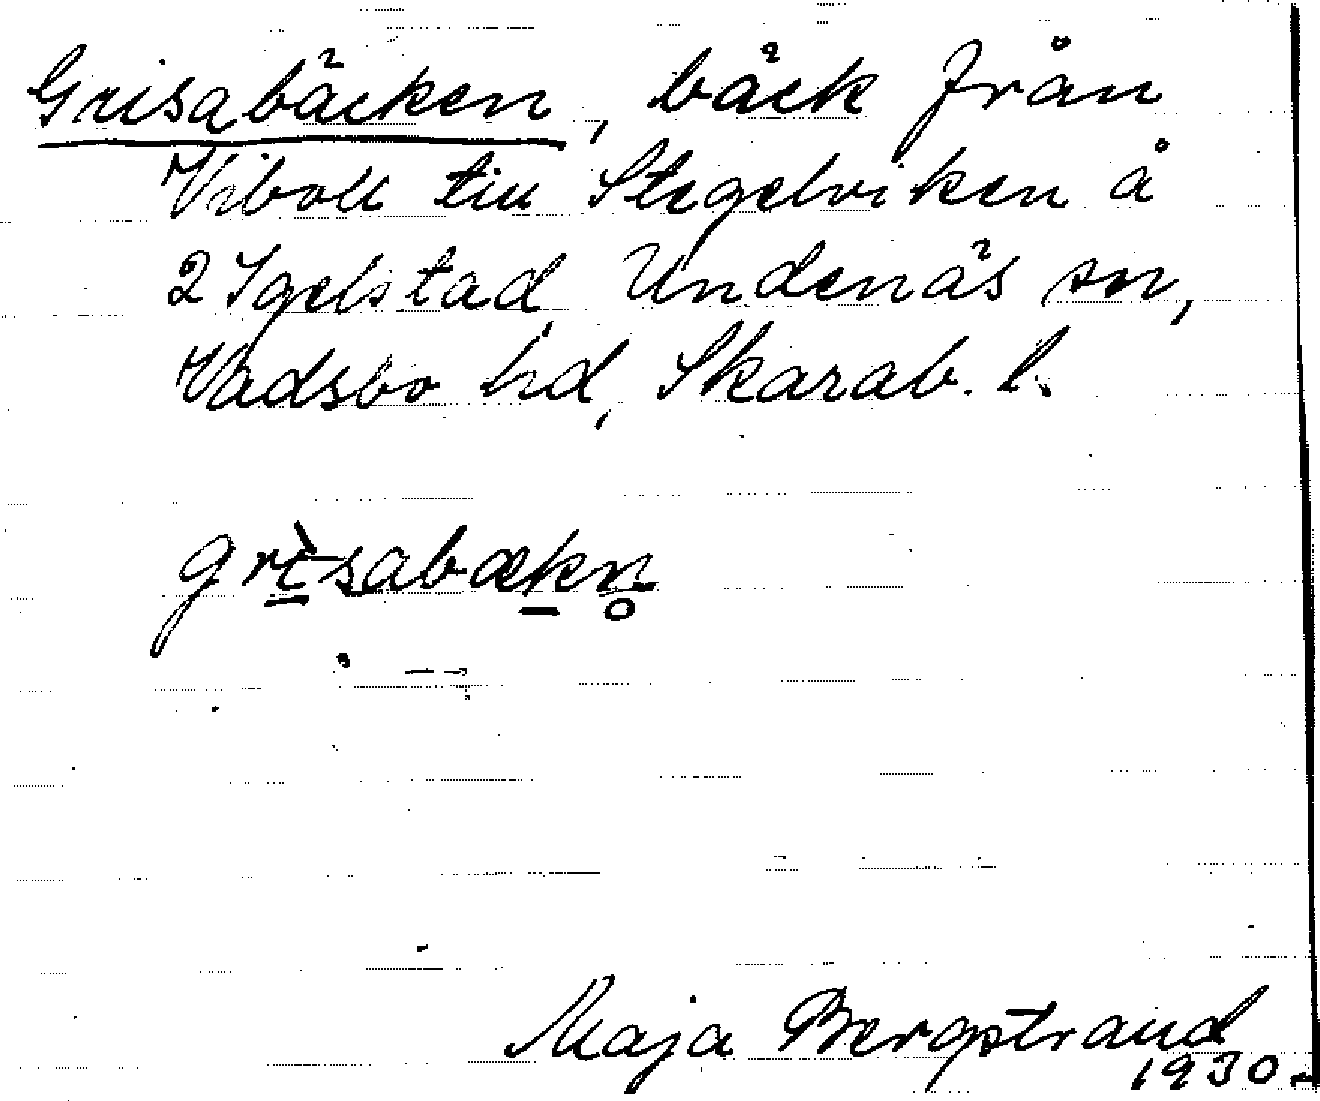 Grisabäcken, bäck från
Viboll till Stegelviken å
2 Igelstad, Undenäs sn,
Vadsbo hd, Skarab. l.
grìsabækn̥
Maja Bergstrand
1930.